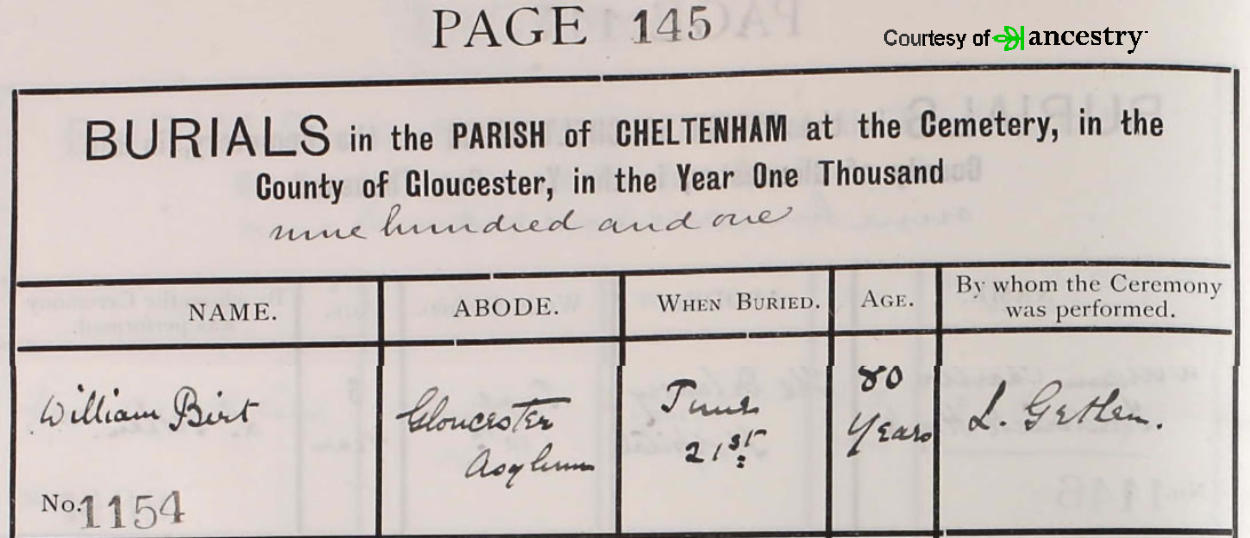 PAGE 145
Courtesy of ancestry
BURIALS in the PARISH of CHELTENHAM at the Cemetery, in the
County of Gloucester, in the Year One Thousand
nine hundred and one
NAME. ABODE. WHEN BURIED. AGE. By whom the Ceremony
was performed.
William Birt Gloucester June 80 L.
Asylum 21st Years
No. 1154